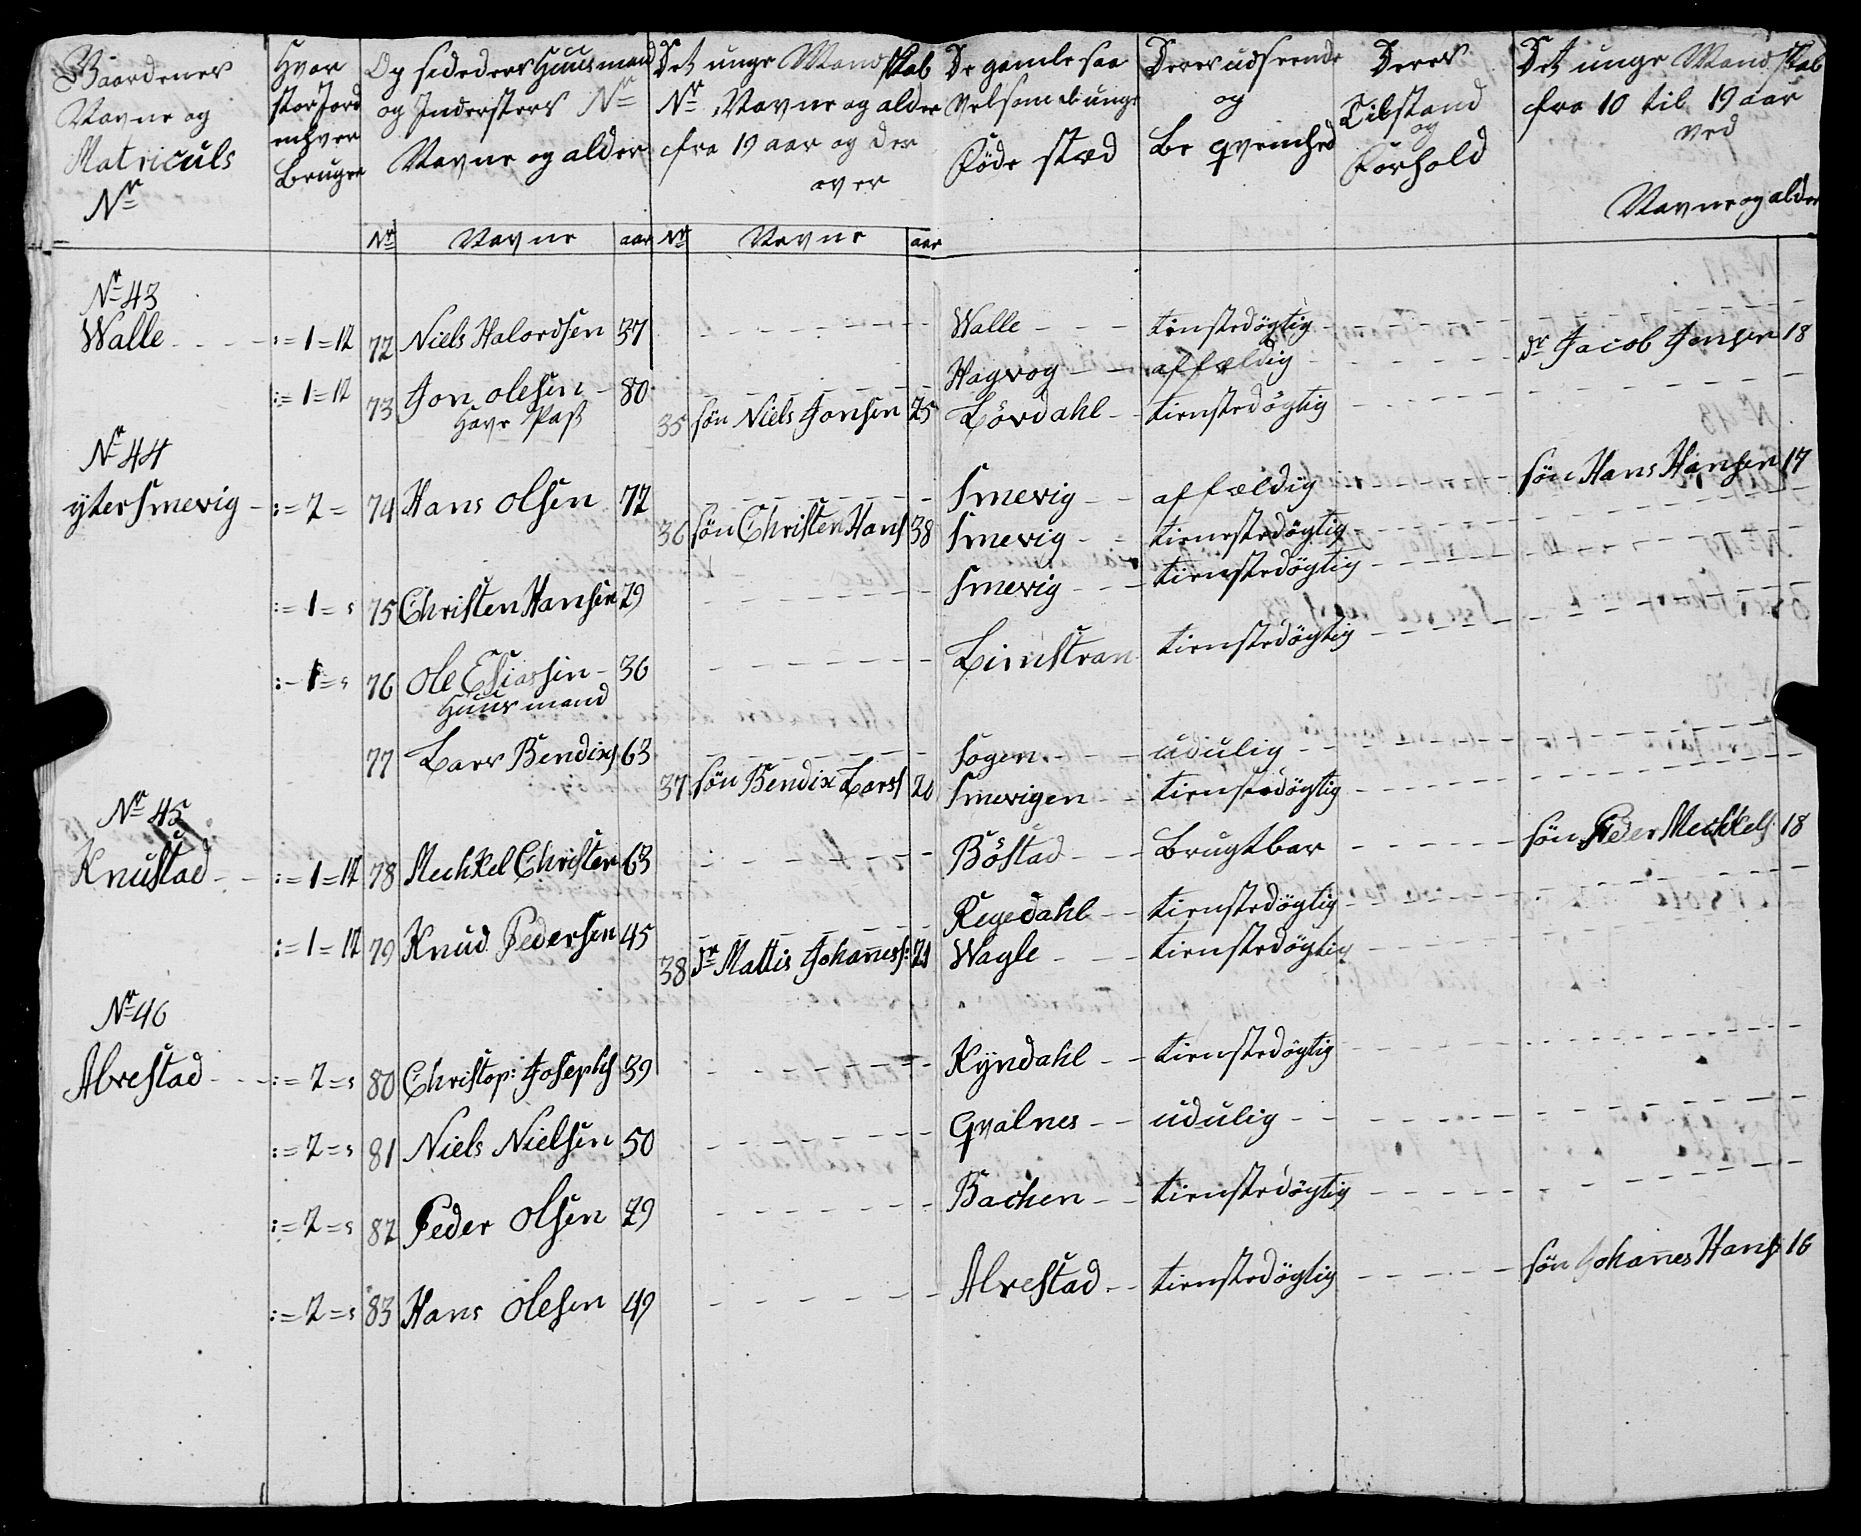 Gaardenes Navne og Matriculs No
Hvor stor Jord enhver Bruger
Opsidders Huusmænd og Inderster No Navne og alder
Det unge Mandskab No, Navne og alder fra 19 aar og der over
De gamle saa vel som de unge Føde stæd
Deres udseende og Be qvemhed
Deres Tilstand og Forhold
Det unge Mandskab fra 10 til 19 aar ved Navne og alder
No Navne aar No Navne aar
No 43
Walle :=1=12 72 Niels Halordsen 37 Walle tienstedøgtig
Hagvog affældig dr Jacob Jonsen 18
:=1=12 73 Jon olesen 80
Have Pass
35 søn Niels Jonsen 25 Lövdahl tienstedøgtig
No 44
yter Smevig :=2= 74 Hans olsen 72 Smevig affældig søn Hans Hansen 17
36 søn Christen Hans 38 Smevig tienestedøgtig
:=1=s 75 Christen Hansen 29 Smevig tienstedøgtig
:=1=s 76 Ole Eliassen 36 Limstran tienstedøgtig
Huusmand
77 Lars Bendixs 63 Sogen udulig
37 søn Bendix Larss 20 Smevigen tienstedøgtig
No 45
Knustad :=1=12 78 Mechkel Christen 63 Böstad Brugtbar søn Peder Mechkels 18
:=1=12 79 Knud Pedersen 45 Regedahl tienstedøgtig
38 dr Mattis Johanes: 21 Wagle tienstedøgtig
No 46
Alvestad :=2=s 80 Christop: Josephs 39 Kyndahl tienstedøgtig
:=2=s 81 Niels Nielsen 50 Qvalnes udulig
:=2=s 82 Peder olsen 29 Bachen tienstedøgtig
:=2=s 83 Hans olesen 49 Alvestad tienstedøgtig søn Johanes Hans 16